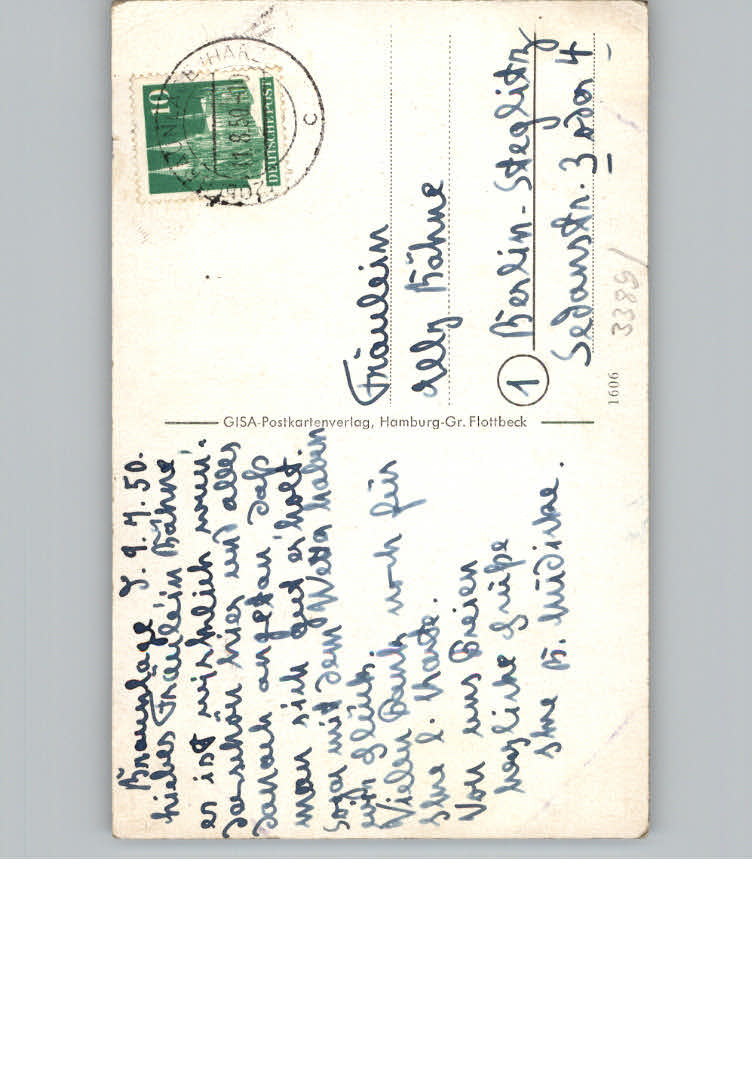 Braunlage J. 9.7.50.
Liebes Fräulein Bähne
es ist wirklich wun-
derschön hier und alles
danach angetan daß
man sich gut erholt.
Sogar mit dem Wetter haben
wir Glück.
Vielen Dank noch für
Ihre l. Karte.
Von uns Dreien
herzliche Grüße
Ihre B. Lüdicke.
GISA-Postkartenverlag, Hamburg-Gr. Flottbeck
10
DEUTSCHE POST
c
Fräulein
Elly Bähne
1 Berlin-Steglitz
Sedanstr. 3 oder 4
1606
3389/